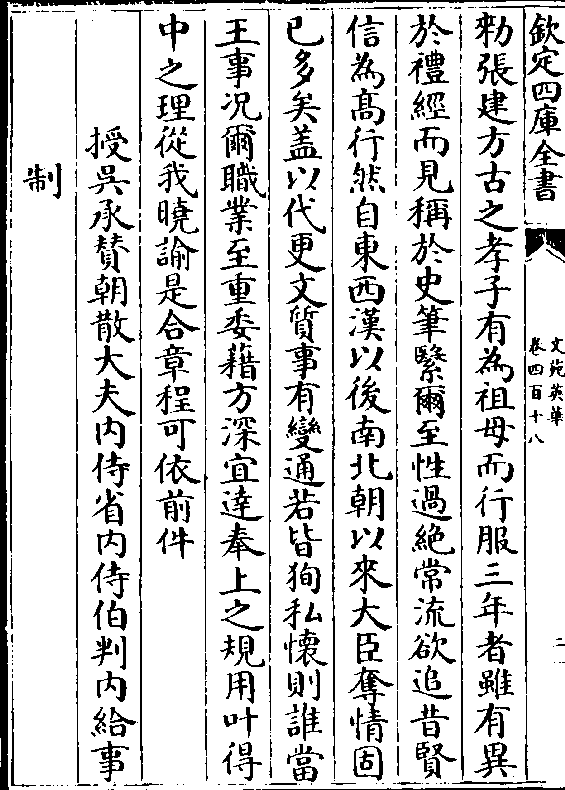 欽定四庫全書
文苑英華
卷四百十八
二
勅張建方古之孝子有為祖母而行服三年者雖有異
於禮經而見稱於史筆繄爾至性過絶常流欲追昔賢
信為髙行然自東西漢以後南北朝以來大臣奪情固
已多矣盖以代更文質事有變通若皆狥私懐則誰當
王事况爾職業至重委藉方深宜達奉上之規用叶得
中之理從我曉諭是合章程可依前件
授吳承贊朝散大夫内侍省内侍伯判内給事
制